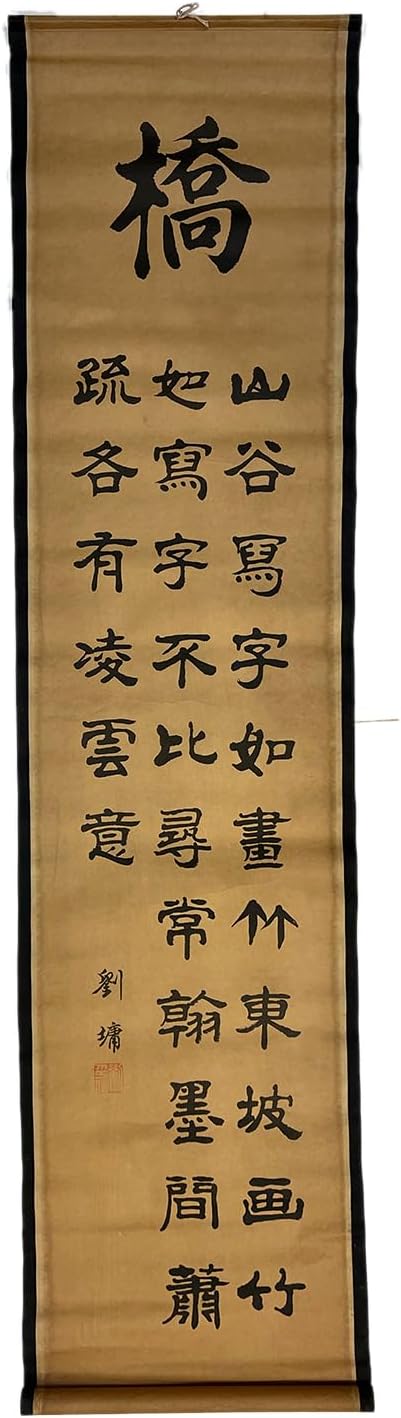 橋
山谷寫字如畫竹東坡画竹
如寫字不比尋常翰墨間蕭
疏各有凌雲意
劉墉